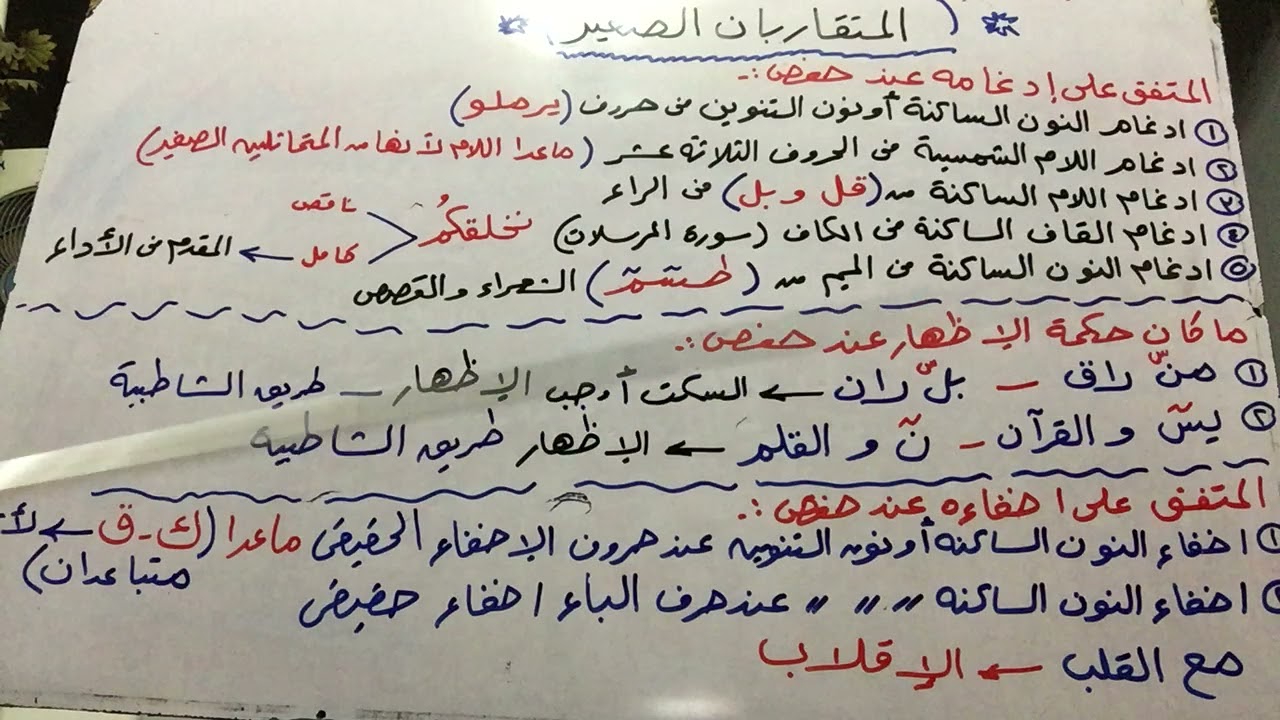 ( المتقاربان الصغير )
المتفق على إدغامه عند حفص :-
① ادغام النون الساكنة أو نون التنوين في حروف (يرملو)
② ادغام اللام الشمسية في الحروف الثلاثة عشر ( ماعدا اللام لأنها من المتماثلين الصغير)
③ ادغام اللام الساكنة من (قل و بل) في الراء
④ ادغام القاف الساكنة في الكاف (سورة المرسلات) نخلقكُم ناقص
كامل ← المقدم في الأداء
⑤ ادغام النون الساكنة في الميم من ( طسٓمٓ ) الشعراء والقصص
ما كان حكمة الإظهار عند حفص :-
① منّ راق – بلّ ران ← السكت أوجب الإظهار – طريق الشاطبية
② يسٓ و القرآن – نٓ و القلم ← الإظهار طريق الشاطبية
المتفق على اخفاءه عند حفص :-
① اخفاء النون الساكنة أو نون التنوين عند حروف الإخفاء الحقيقي ماعدا (ك - ق ←
متباعدان)
اخفاء النون الساكنة 〃 〃 〃 عند حرف الباء اخفاء حقيقي
مع القلب ← الإقلاب